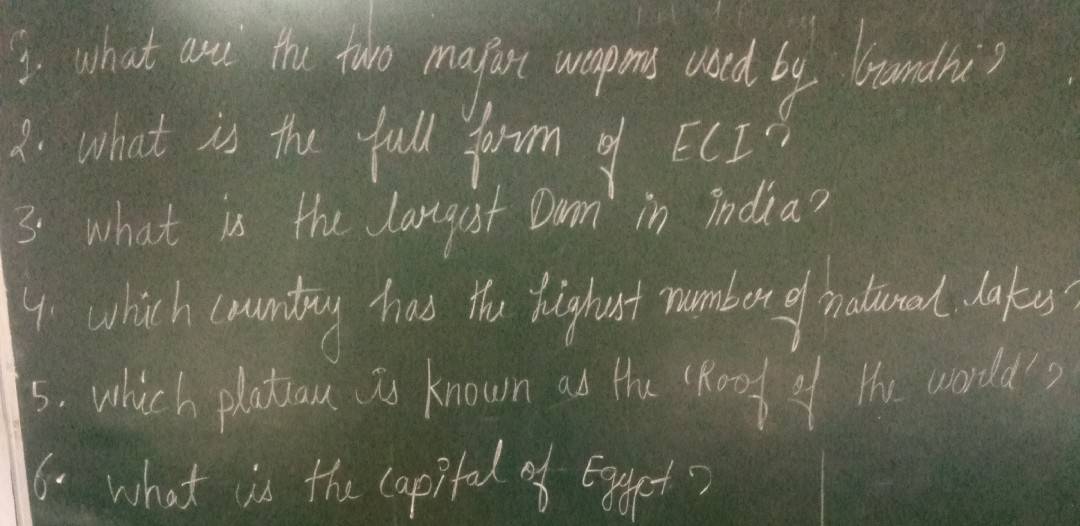 1. what are the two major weapons used by Grandhi?
2. what is the full form of ECI?
3. what is the largest Dam in india?
4. which country has the highest number of natural lakes?
5. which plateau is known as the 'Roof of the world'?
6. what is the capital of Egypt?